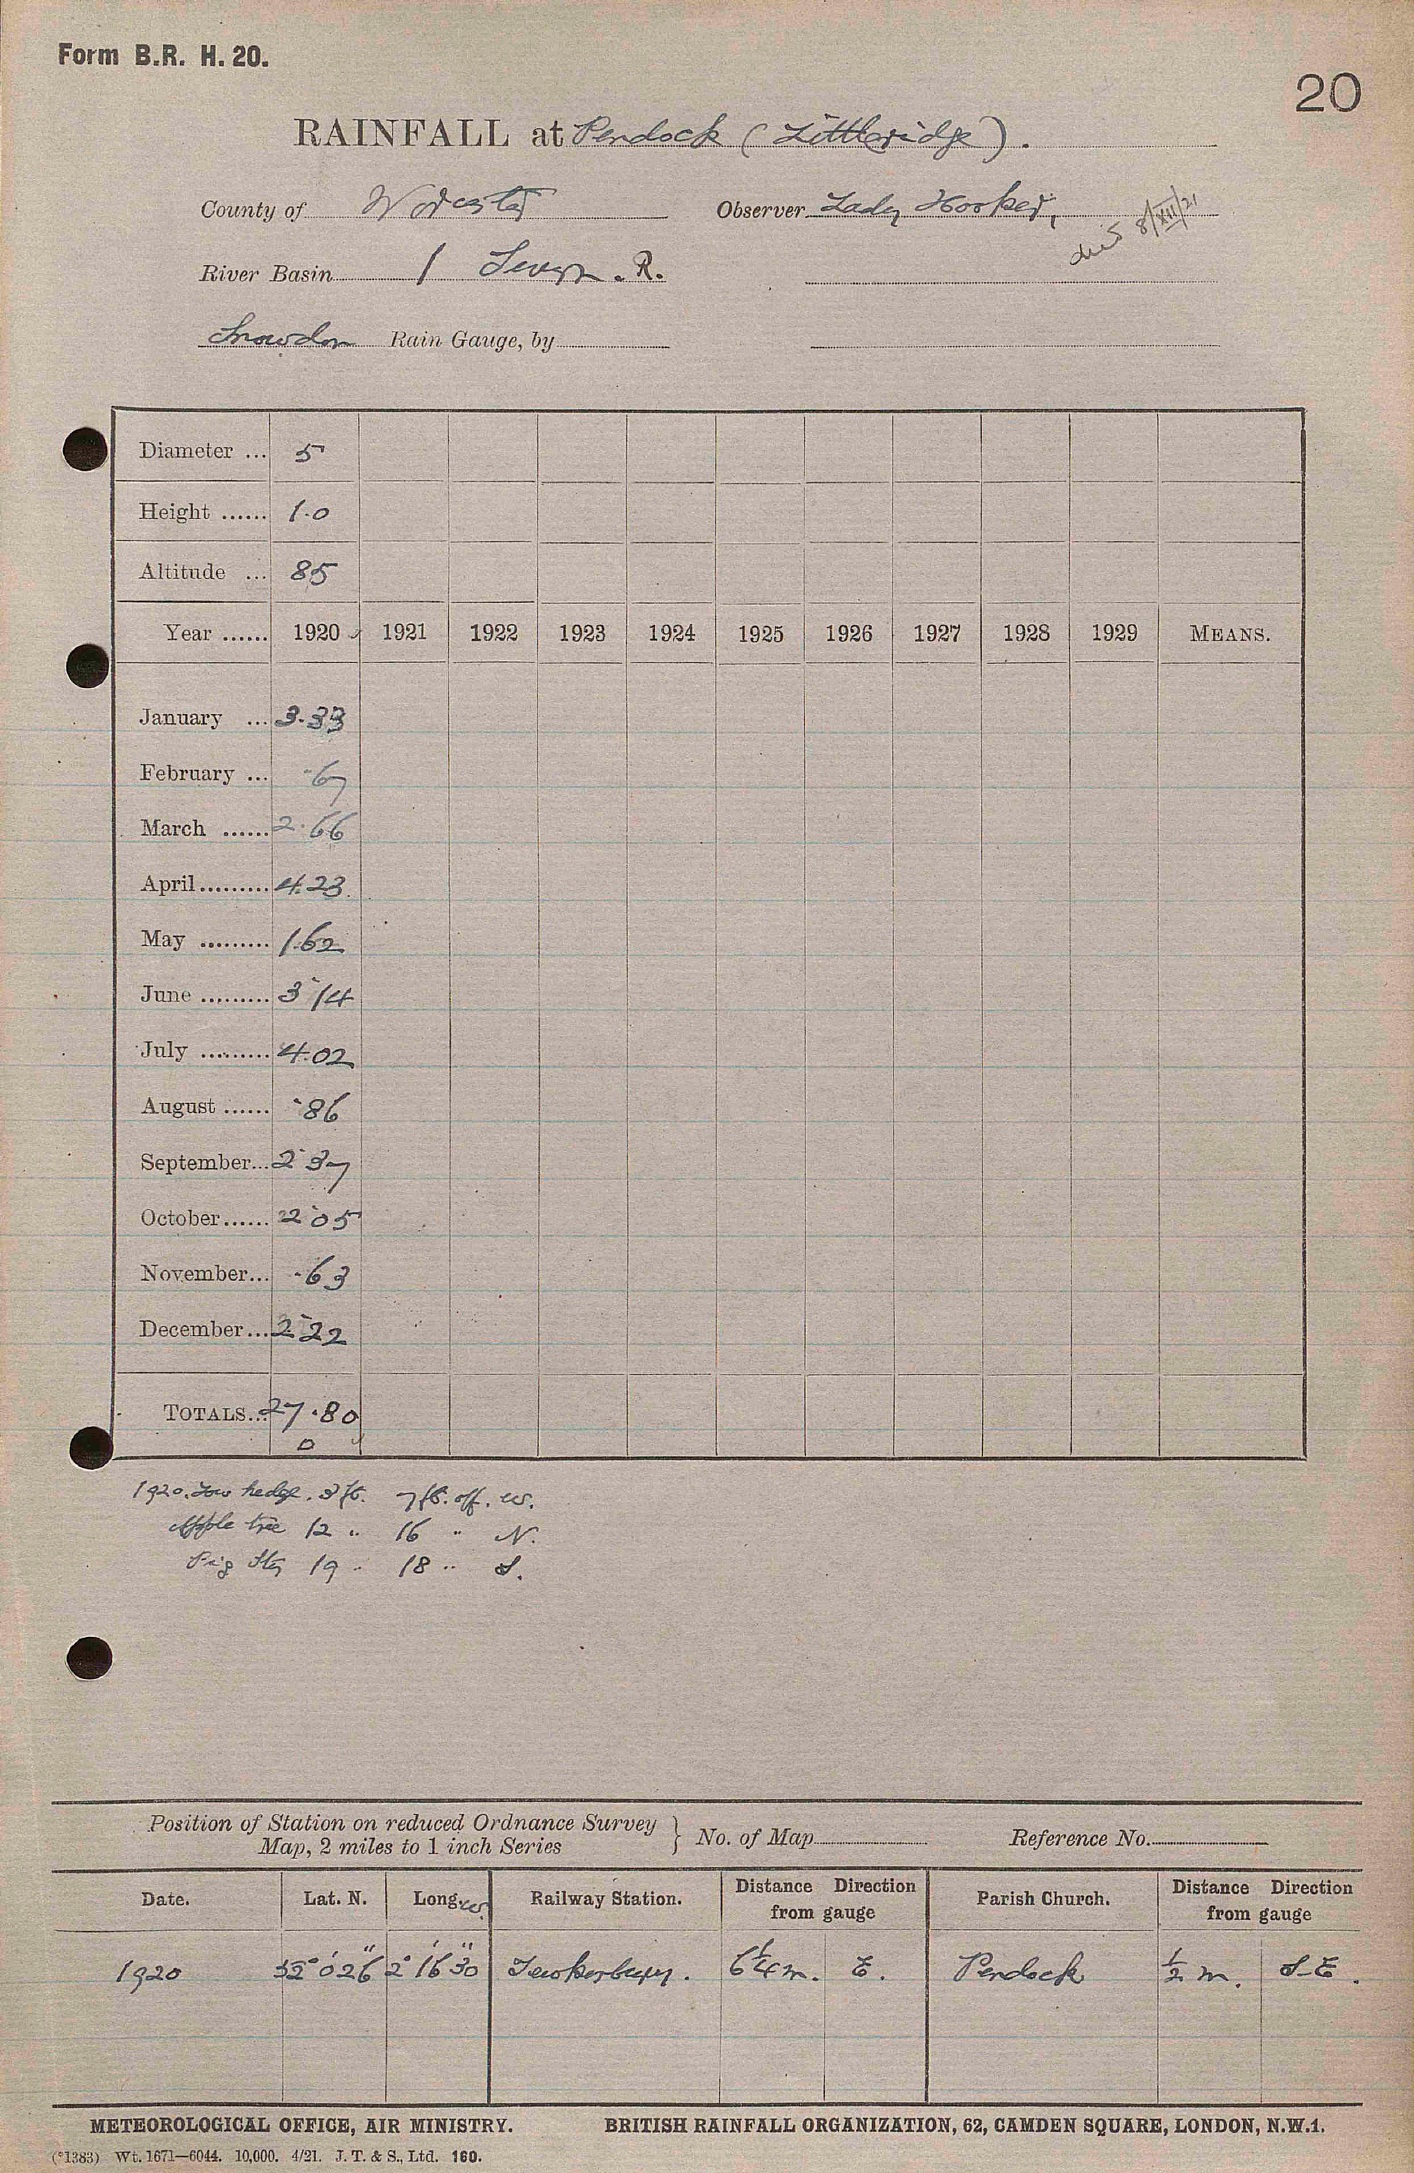 Form B.R. H. 20.
20
RAINFALL at Pendock (Littleridge).
County of Worcester Observer Lady Hooker,
died 8/XII/21
River Basin / Severn. R.
Snowdon Rain Gauge, by
Diameter ... 5
Height ...... 1.0
Altitude ... 85
Year ...... 1920 1921 1922 1923 1924 1925 1926 1927 1928 1929 MEANS.
January ... 3.33
February ... .67
March ...... 2.66
April ......... 4.23
May ......... 1.62
June ......... 3.14
July ......... 4.02
August ...... .86
September... 2.37
October...... 2.05
November... .63
December... 2.22
TOTALS... 27.80
0
1920. Low hedge. 3 ft. 7 ft. off. W.
Apple tree 12 " 16 " N.
Pig Sty 19 " 18 " S.
Position of Station on reduced Ordnance Survey Map, 2 miles to 1 inch Series } No. of Map Reference No.
Date. Lat. N. Long. W. Railway Station. Distance Direction from gauge Parish Church. Distance Direction from gauge
1920 52° 0' 26" 2° 16' 30" Tewkesbury. 6¼ m. E. Pendock ½ m. S-E.
METEOROLOGICAL OFFICE, AIR MINISTRY. BRITISH RAINFALL ORGANIZATION, 62, CAMDEN SQUARE, LONDON, N.W.1.
(*1383) Wt. 1671—6044. 10,000. 4/21. J. T. & S., Ltd. 160.